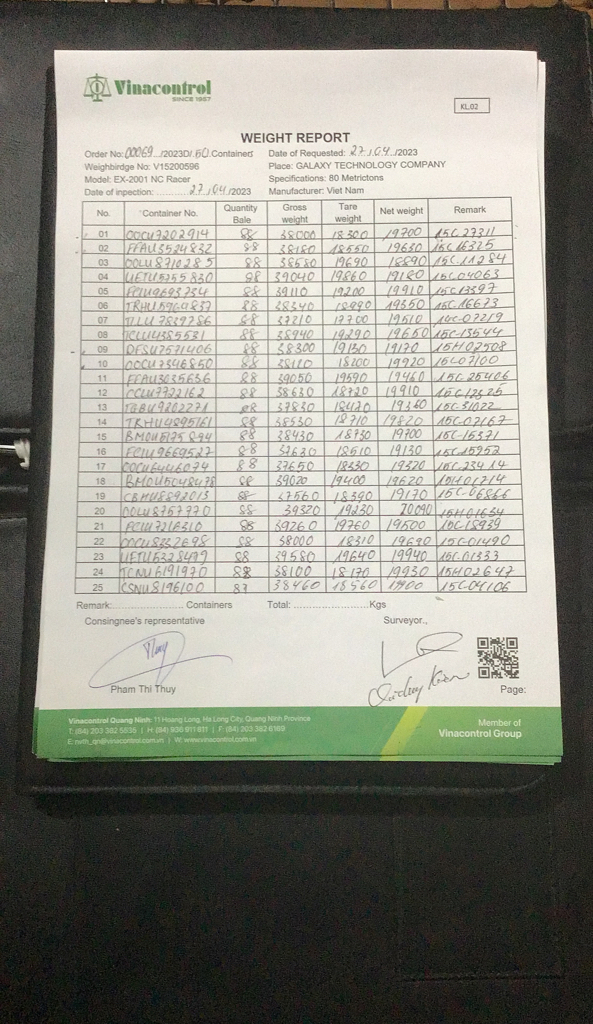 Vinacontrol
SINCE 1957
KL.02
WEIGHT REPORT
Order No: 00069 /2023D/.50.Containers Date of Requested: 27/04/2023
Weighbirdge No: V15200596 Place: GALAXY TECHNOLOGY COMPANY
Model: EX-2001 NC Racer Specifications: 80 Metrictons
Date of inpection: 27/04/2023 Manufacturer: Viet Nam
No. Container No. Quantity Bale Gross weight Tare weight Net weight Remark
01 OOCU7202914 88 38000 18300 19700 15C-27311
02 FFAU3524832 88 38180 18550 19630 15C16325
03 OOLU8710285 88 38580 19690 18890 15C-11284
04 UETU5255830 88 39040 19860 19180 15C04063
05 88 39110 19200 19910 15C13897
06 TRHU5964837 88 38340 18990 19350 15C16673
07 88 37210 17700 19510 15C-07219
08 TCLU4385531 88 38940 19290 19650 15C-13544
09 DFSU7571406 88 38300 19130 19170 15H02508
10 OOCU7346850 88 38110 18200 19920 15C07100
11 FFAU3035636 88 39050 19590 19460 15C25406
12 88 38630 18720 19910
13 88 37830 18470 19360
14 TRHU4895161 88 38530 18710 19820 15C-07167
15 88 38430 18730 19700 15C-15371
16 88 37630 18510 19130 15C15952
17 OOCU6446074 88 37650 18330 19320 15C-23414
18 BMOU5048478 88 39020 19400 19620 15H01714
19 CBHU8892013 88 37560 18390 19170 15C-06866
20 OOLU8757770 88 39320 19230 20090 15H01634
21 FCIU7216310 88 39260 19760 19500 15C18939
22 OOCU8332698 88 38000 18310 19690 15C-01490
23 UETU5328479 88 39580 19640 19940 15C.01333
24 TCNU6191970 88 38100 18170 19930 15H02647
25 CSNU8196100 87 38460 18560 19900 15C-04106
Remark: Containers Total: Kgs
Consingnee's representative Surveyor.,
Thuy
Pham Thi Thuy
Page:
Vinacontrol Quang Ninh: 11 Hoang Long, Ha Long City, Quang Ninh Province
T: (84) 203 382 5635 | H: (84) 936 911 811 | F: (84) 203 382 6189
E: nvth_qn@vinacontrol.com.vn | W: www.vinacontrol.com.vn
Member of
Vinacontrol Group